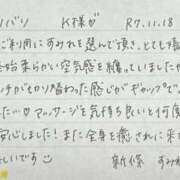 バリ K様が R7.11.18
ご利用にすみれを選んで頂き、とても嬉
始終柔らかい空気感を纏っていましたが
ッチがセカり替わった感じがギャップで
たい♡マッサージを気持ち良いと何度
安心しました！また全身を癒されに来
しいです☺ 新條 すみれ